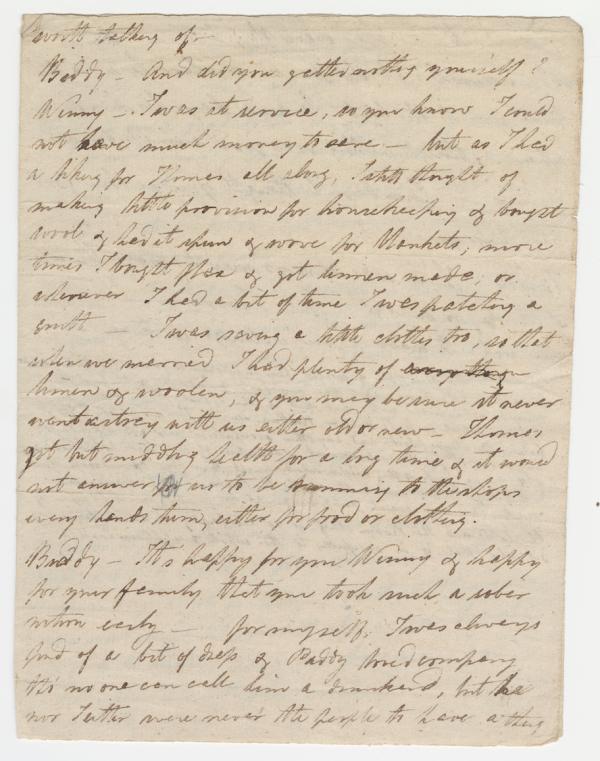 worth talking of—
Biddy — And did you get nothing yourself?
Winny — I was at service, so you know I could
not have much money to save — but as I had
a liking for Thomas all along, I still thought of
making little provision for housekeeping & bought
wool & had it spun & wove for blankets; more
times I bought flax & got linnen made, or
whenever I had a bit of time I was patching a
quilt — I was saving a little clothes too, so that
when we married I had plenty of everything
linnen & woolen, & you may be sure it never
went astray with us either old or new — Thomas
got but middling health for a long time & it would
not answer for us to be running to the shops
every hands turn, either for food or clothing.
Biddy — It's happy for you Winny & happy
for your family that you took such a sober
notion early — for myself, I was always
fond of a bit of dress & Paddy loved company
tho' no one can call him a drunkard, but he
nor I either were never the people to have a thing